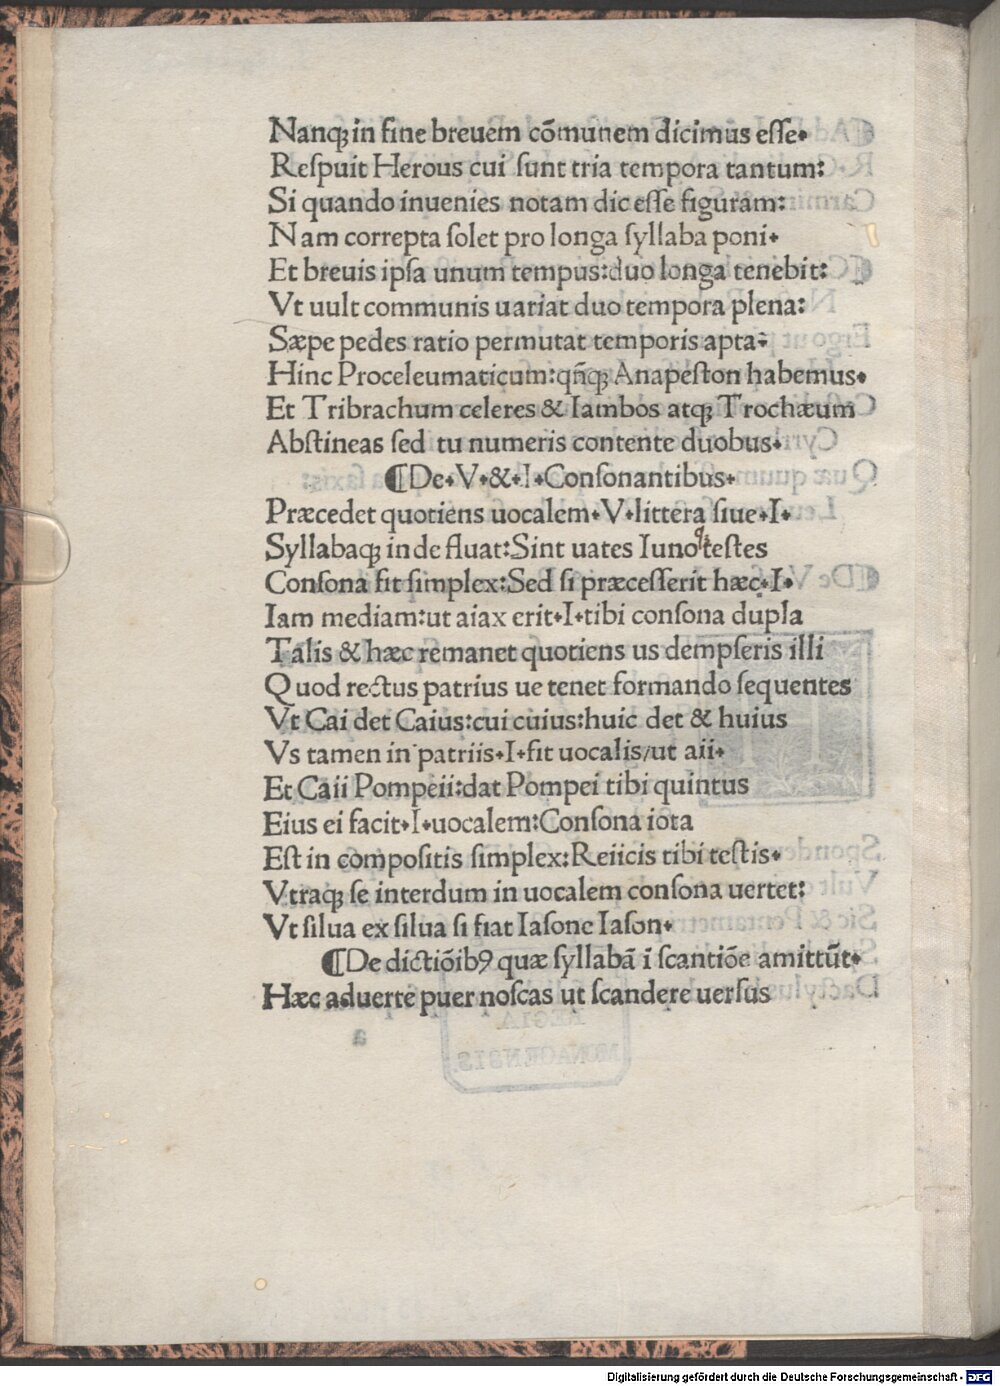 Nanqꝫ in fine breuem cõmunem dicimus eſſe.
Reſpuit Herous cui ſunt tria tempora tantum:
Si quando inuenies notam dic eſſe figuram:
Nam correpta ſolet pro longa ſyllaba poni.
Et breuis ipſa unum tempus: duo longa tenebit:
Vt uult communis uariat duo tempora plena:
Sæpe pedes ratio permutat temporis apta:
Hinc Proceleumaticum: qñqꝫ Anapeſton habemus.
Et Tribrachum celeres & Iambos atqꝫ Trochæum
Abſtineas ſed tu numeris contente duobus.
¶De.V.&.I.Conſonantibus.
Præcedet quotiens uocalem.V.littera ſiue.I.
Syllabaqꝫ inde fluat: Sint uates Iuno teſtes
Conſona fit ſimplex: Sed ſi præceſſerit hæc.I.
Iam mediam: ut aiax erit.I.tibi conſona dupla
Talis & hæc remanet quotiens us dempſeris illi
Quod rectus patrius ue tenet formando ſequentes
Vt Cai det Caius: cui cuius: huic det & huius
Vs tamen in patriis.I.fit uocalis/ut aii.
Et Caii Pompeii: dat Pompei tibi quintus
Eius ei facit.I.uocalem: Conſona iota
Eſt in compoſitis ſimplex: Reiicis tibi teſtis.
Vtraqꝫ ſe interdum in uocalem conſona uertet:
Vt ſilua ex ſilua ſi fiat Iaſone Iaſon.
¶De dictiõibꝰ quæ ſyllabã ĩ ſcantiõe amittũt.
Hæc aduerte puer noſcas ut ſcandere uerſus
Digitalisierung gefördert durch die Deutsche Forschungsgemeinschaft - DFG